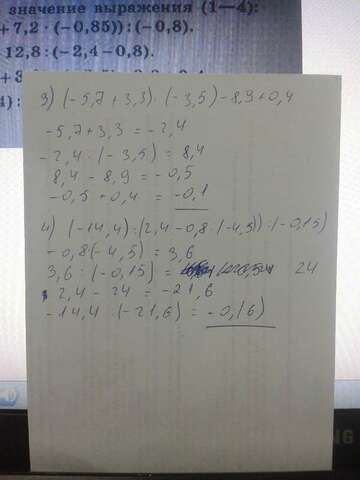 значение выражения (1—4):
+ 7,2 · (−0,85)) : (−0,8).
12,8 : (−2,4 − 0,8).
3) (-5,7 + 3,3) · (-3,5) - 8,9 + 0,4
-5,7 + 3,3 = -2,4
-2,4 · (-3,5) = 8,4
8,4 - 8,9 = -0,5
-0,5 + 0,4 = -0,1
4) (-14,4) : (2,4 - 0,8 · (-4,5)) : (-0,15)
-0,8 (-4,5) = 3,6
3,6 : (-0,15) = 24
2,4 - 24 = -21,6
-14,4 : (-21,6) = -0,(6)